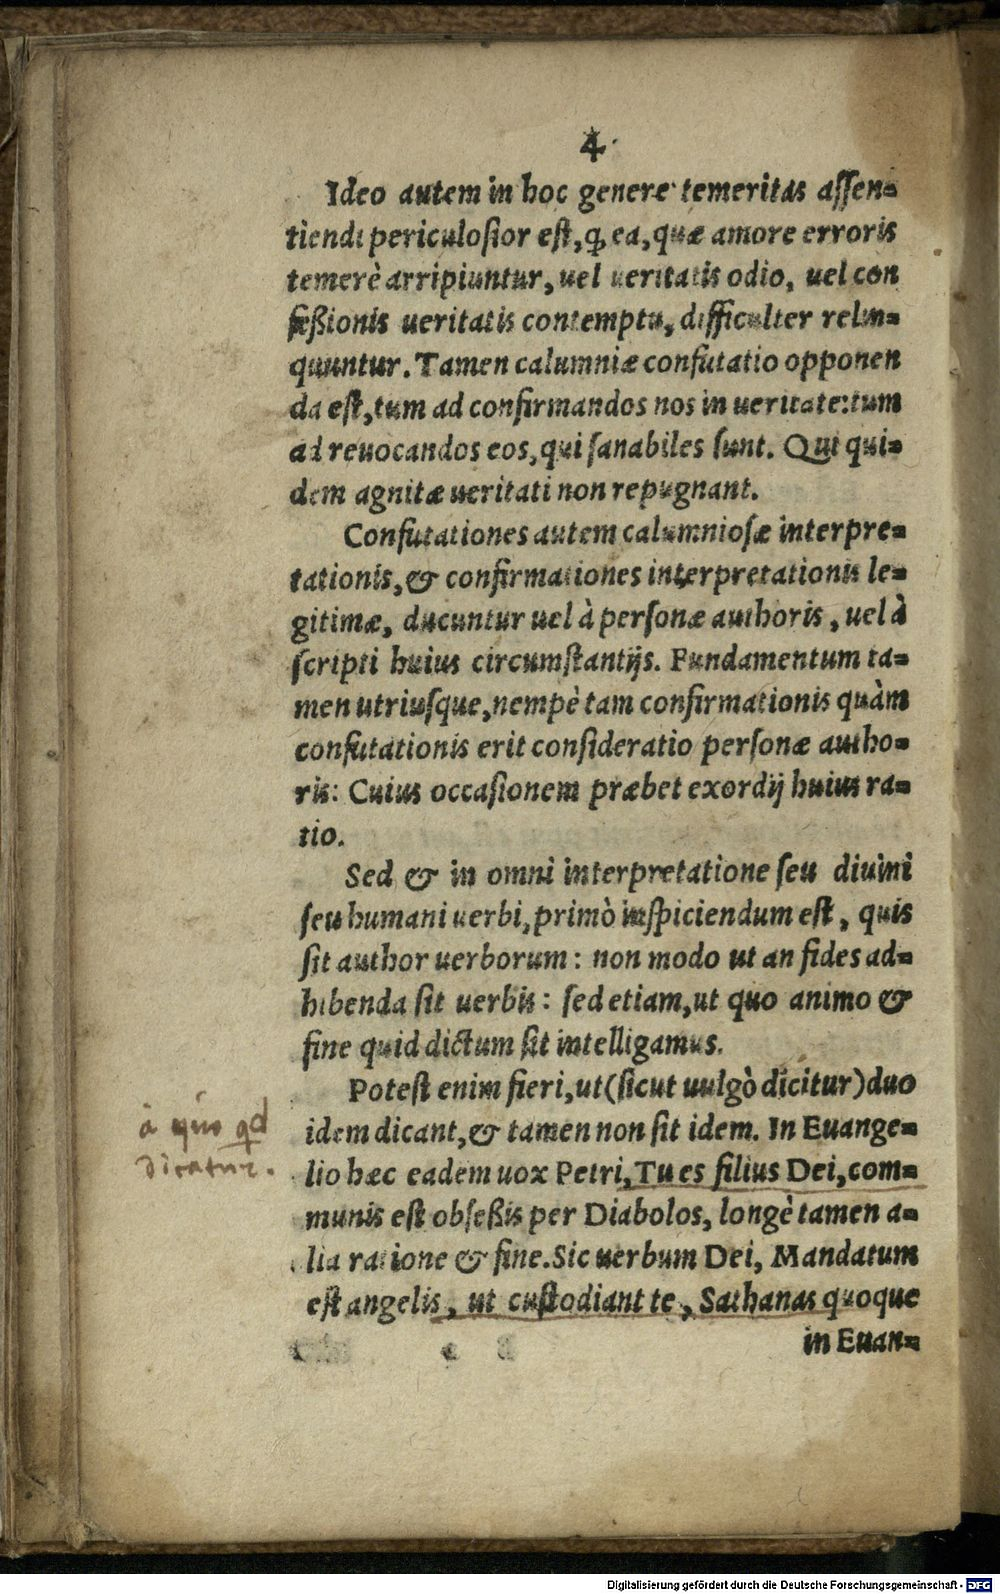 4.
Ideo autem in hoc genere temeritas assen-
tiendi periculosior est, ꝙ ea, quæ amore erroris
temerè arripiuntur, uel ueritatis odio, uel con
feßionis ueritatis contemptu, difficulter relin-
quuntur. Tamen calumniæ confutatio opponen
da est, tum ad confirmandos nos in ueritate: tum
ad reuocandos eos, qui sanabiles sunt. Qui qui-
dem agnitæ ueritati non repugnant.
Confutationes autem calumniosæ interpre-
tationis, & confirmationes interpretationis le-
gitimæ, ducuntur uel à personæ authoris, uel à
scripti huius circumstantijs. Fundamentum ta-
men utriusque, nempè tam confirmationis quàm
confutationis erit consideratio personæ autho-
ris: Cuius occasionem præbet exordij huius ra-
tio.
Sed & in omni interpretatione seu diuini
seu humani uerbi, primò inspiciendum est, quis
sit author uerborum: non modo ut an fides ad-
hibenda sit uerbis: sed etiam, ut quo animo &
fine quid dictum sit intelligamus.
Potest enim fieri, ut (sicut uulgò dicitur) duo
idem dicant, & tamen non sit idem. In Euange-
lio hæc eadem uox Petri, Tu es filius Dei, com-
munis est obseßis per Diabolos, longè tamen a-
lia ratione & fine. Sic uerbum Dei, Mandatum
est angelis, ut custodiant te, Sathanas quoque
in Euan-
à quo qd
dicatur.
Digitalisierung gefördert durch die Deutsche Forschungsgemeinschaft - DFG